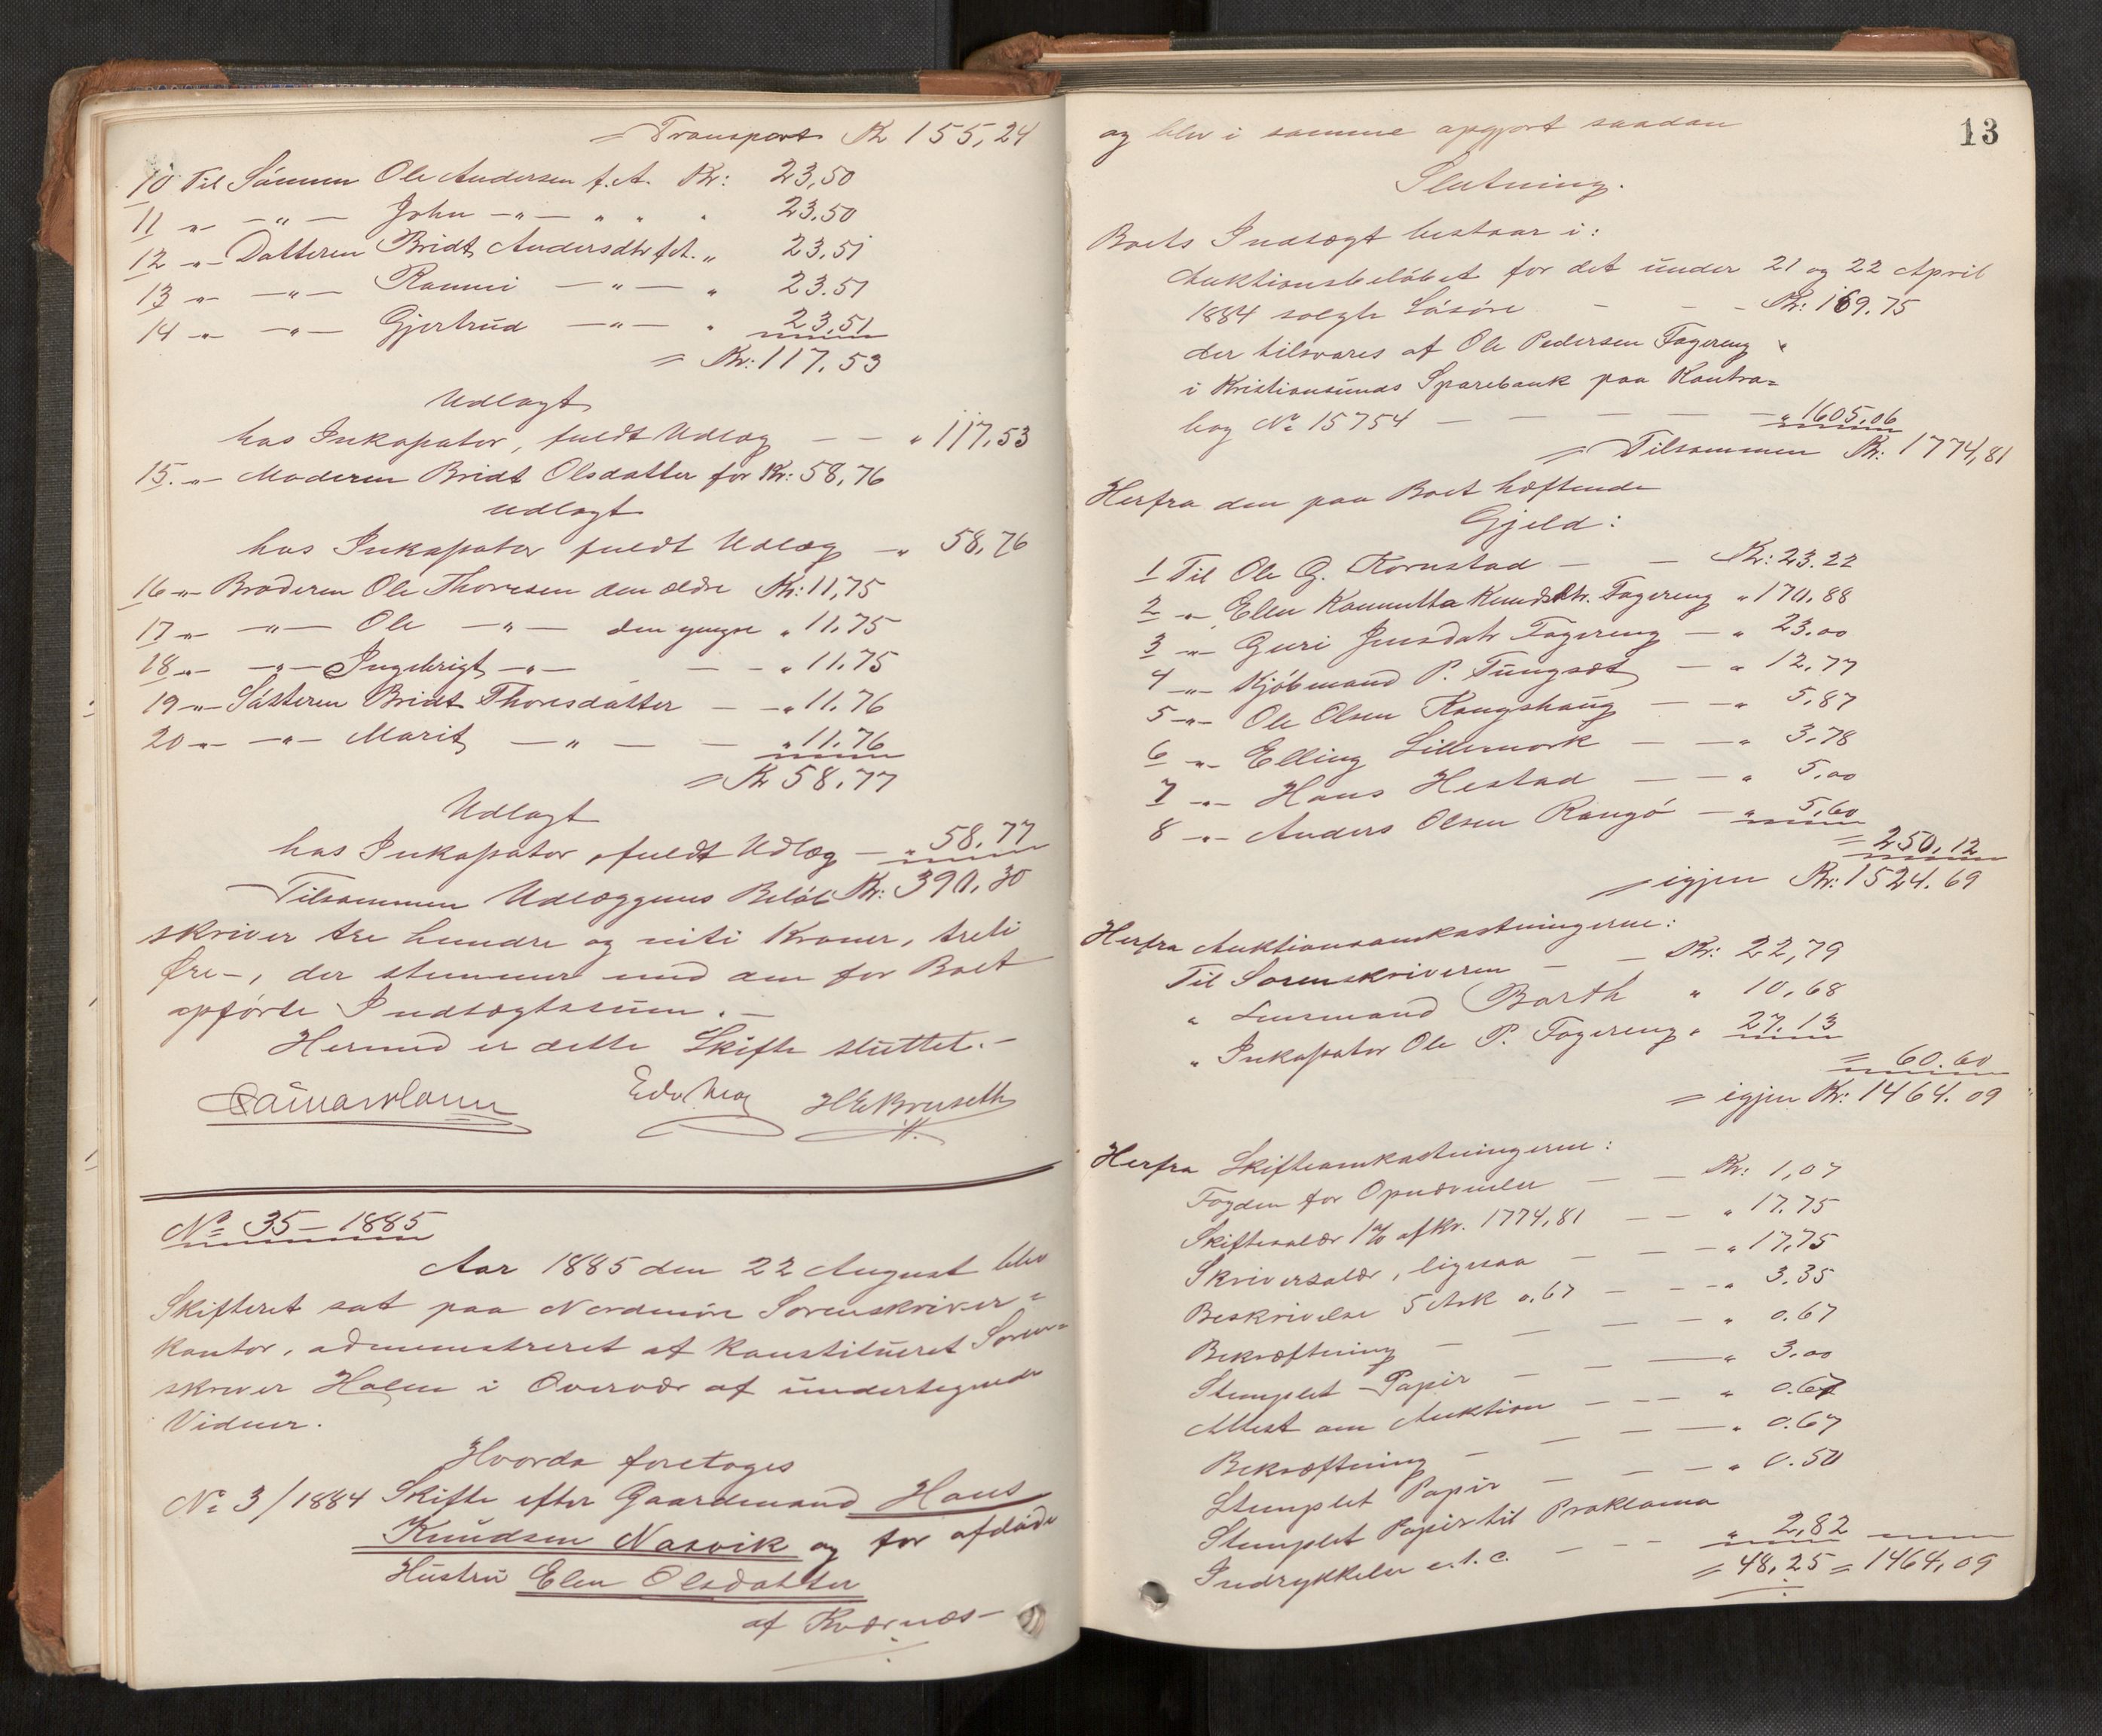 = Transport Kr 155,24
10 Til Sönnen Ole Andersen f.A. Kr: 23,50
11 „ — „ — John — „ — „ „ „ 23.50
12 „ Datteren Bridt Andersdtr f.A. „ 23.51
13 „ — „ — Rannei — „ — „ 23.51
14 „ — „ — Gjertrud — „ — „ 23,51
= Kr: 117.53
Udlagt
hos Inkassator, fuldt Udlæg — — „ 117,53
15. „ Moderen Bridt Olsdatter for Kr: 58,76
udlagt
hos Inkassator fuldt Udlæg — „ 58,76
16 „ Broderen Ole Thoresen den ældre Kr: 11,75
17 „ — „ — Ole — „ — den yngre „ 11.75
18 „ — „ — Ingebrigt — „ — — — „ 11.75
19 „ Sösteren Bridt Thoresdatter — — „ 11.76
20 „ — „ — Marit — „ — — „ 11.76
= Kr 58.77
Udlagt
hos Inkassator, fuldt Udlæg — „ 58.77
Tilsammen Udlæggenes Belöb Kr: 390,30
skriver tre hundre og niti Kroner, treti
Øre —, der stemmer med den for Boet
opförte Indtægtssum. —
Hermed er dette Skifte sluttet. —
H E Bruseth
No 35 — 1885
Aar 1885 den 22 August blev
Skifteret sat paa Nordmöre Sorenskriver=
kontor, admenestreret af konstitüeret Soren=
skriver Holm i Overvær af undertegnede
Vidner.
Hvorda foretoges
No 3/1884 Skifte efter Gaardmand Hans
Knudsen Nasvik og for afdöde
Hustru Elen Olsdatter
af Kværnæs —
13
og blev i samme opgjort saadan
Slutning.
Boets Indtægt bestaar i:
Auktionsbelöbet for det under 21 og 22 April
1884 solgte Lösöre — — — Kr: 169.75
der tilsvares af Ole Pedersen Fagereng
i Kristiansunds Sparebank paa Kontra=
bog No 15754 — — — — — „ 1605,06
= Tilsammen Kr: 1774,81
Herfra den paa Boet hæftende
Gjeld:
1 Til Ole G. Kornstad — — Kr: 23.22
2 „ Elen Kanutta Knudsdtr. Fagereng „ 170,88
3 „ Guri Jensdatr Fagereng — „ 23.00
4 „ Kjöbmand P. Tüngsæt — „ 12.77
5 „ Ole Olsen Kongshaug — — „ 5,87
6 „ Elling Lillemork — — „ 3.78
7 „ Hans Hestad — — „ 5.00
8 „ Anders Olsen Rangö — „ 5,60
= 250,12
= igjen Kr: 1524.69
Herfra Auktionsomkostningerne:
Til Sorenskriveren — — Kr: 22,79
„ Lensmand Barth „ 10,68
„ Inkassator Ole P. Fagereng „ 27.13
= 60.60
= igjen Kr: 1464.09
Herfra Skifteomkostningerne:
Fogden for Opnævnelse — — Kr: 1,07
Skiftesalær 1% af Kr. 1774,81 — — „ 17.75
Skriversalær, ligesaa — — — „ 17.75
Beskrivelse 5 Ark a. 67 — — „ 3.35
Bekræftning — — — — „ 0.67
Stemplet Papir — — — „ 3.00
Attest om Auktion — — — „ 0.67
Bekræftning — — — — „ 0.67
Stemplet Papir — — — „ 0.50
Stemplet Papir til Proklama
Indrykkelse e.t.c. — — — „ 2,82
= 48,25 = 1464,09